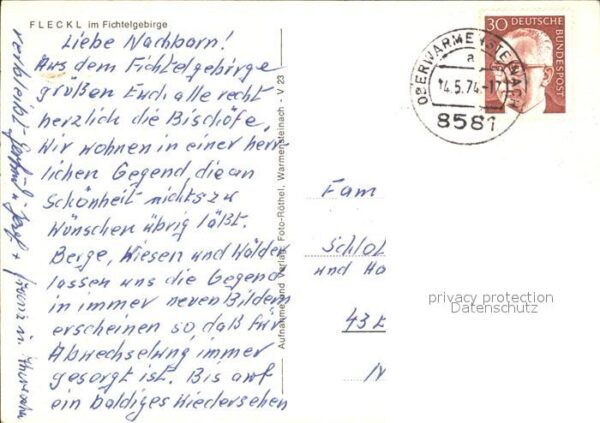 FLECKL im Fichtelgebirge
Liebe Nachbarn!
Aus dem Fichtelgebirge
grüßen Euch alle recht
herzlich die Bischöfe.
Wir wohnen in einer herr-
lichen Gegend, die an
Schönheit nichts zu
Wünschen übrig läßt.
Berge, Wiesen und Wälder
lassen uns die Gegend
in immer neuen Bildern
erscheinen so daß für
Abwechselung immer
gesorgt ist. Bis auf
ein baldiges Wiedersehen
verbleibt
Aufnahme und Verlag: Foto-Röthel, Warmensteinach - V 23
OBERWARMENSTEINACH
a
14.5.74-17
8581
30 DEUTSCHE
BUNDESPOST
Fam
Schlo
und Ha
43 E
privacy protection
Datenschutz